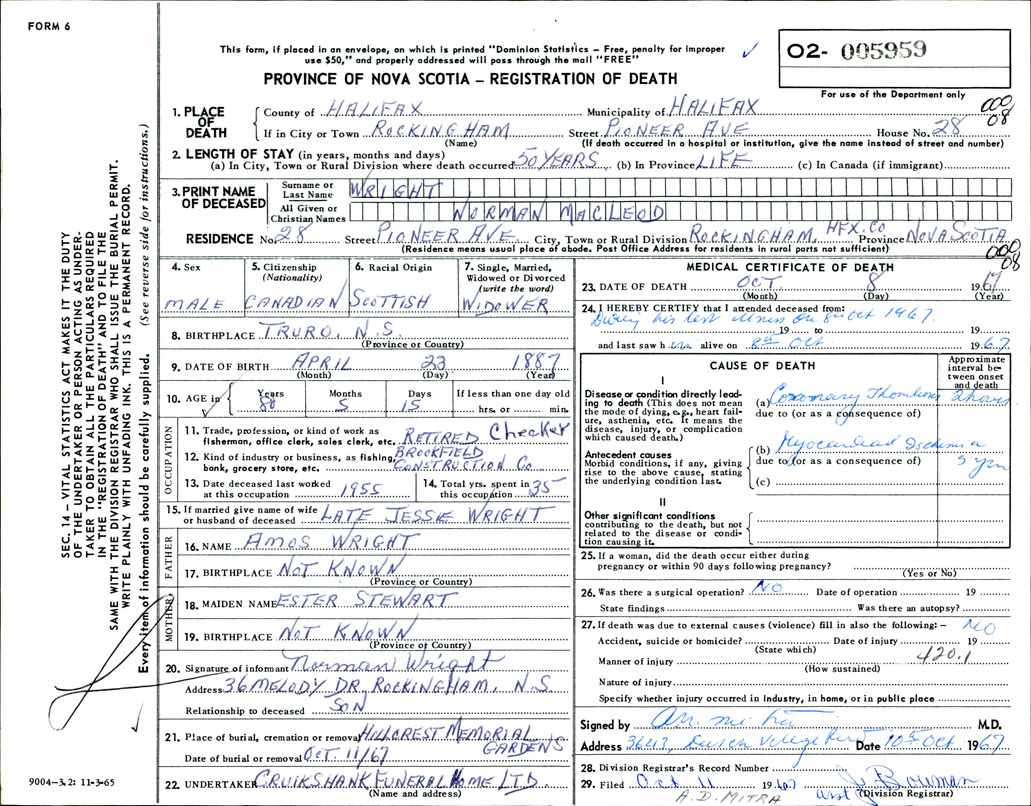 FORM 6
This form, if placed in an envelope, on which is printed "Dominion Statistics – Free, penalty for improper
use $50," and properly addressed will pass through the mail "FREE"
✓
O2- 005959
PROVINCE OF NOVA SCOTIA – REGISTRATION OF DEATH
For use of the Department only
1. PLACE OF DEATH
County of HALIFAX Municipality of HALIFAX
000 08
If in City or Town ROCKINGHAM Street PIONEER AVE House No. 28
(Name) (If death occurred in a hospital or institution, give the name instead of street and number)
2. LENGTH OF STAY (in years, months and days)
(a) In City, Town or Rural Division where death occurred 50 YEARS (b) In Province LIFE (c) In Canada (if immigrant)
3. PRINT NAME OF DECEASED
Surname or Last Name WRIGHT
All Given or Christian Names NORMAN MACLEOD
RESIDENCE No. 28 Street PIONEER AVE City, Town or Rural Division ROCKINGHAM, HFX. CO Province NOVA SCOTIA
(Residence means usual place of abode. Post Office Address for residents in rural parts not sufficient)
000 08
4. Sex
MALE
5. Citizenship (Nationality)
CANADIAN
6. Racial Origin
SCOTTISH
7. Single, Married, Widowed or Divorced (write the word)
WIDOWER
8. BIRTHPLACE TRURO, N.S.
(Province or Country)
9. DATE OF BIRTH APRIL 23 1887
(Month) (Day) (Year)
10. AGE in Years Months Days If less than one day old
✓ 80 5 15 hrs. or min.
OCCUPATION
11. Trade, profession, or kind of work as
fisherman, office clerk, sales clerk, etc. RETIRED Checker
12. Kind of industry or business, as fishing, BROOKFIELD
bank, grocery store, etc. CONSTRUCTION CO
13. Date deceased last worked at this occupation 1955
14. Total yrs. spent in this occupation 35
15. If married give name of wife
or husband of deceased LATE JESSIE WRIGHT
FATHER
16. NAME AMOS WRIGHT
17. BIRTHPLACE NOT KNOWN
(Province or Country)
MOTHER
18. MAIDEN NAME ESTER STEWART
19. BIRTHPLACE NOT KNOWN
(Province or Country)
20. Signature of informant Norman Wright
Address 36 MELODY DR, ROCKINGHAM, N.S.
Relationship to deceased SON
21. Place of burial, cremation or removal HILLCREST MEMORIAL GARDENS
Date of burial or removal OCT 11/67
22. UNDERTAKER CRUIKSHANK FUNERAL HOME LTD.
(Name and address)
MEDICAL CERTIFICATE OF DEATH
23. DATE OF DEATH OCT. 8 1967
(Month) (Day) (Year)
24. I HEREBY CERTIFY that I attended deceased from:
During his last illness on 8th Oct 1967.
19 to 19
and last saw him alive on 8th Oct. 1967.
CAUSE OF DEATH
Approximate interval between onset and death
I
Disease or condition directly leading to death (This does not mean
the mode of dying, e.g., heart failure, asthenia, etc. It means the
disease, injury, or complication
which caused death.)
(a) Coronary Thrombosis 2 hours
due to (or as a consequence of)
Antecedent causes
Morbid conditions, if any, giving
rise to the above cause, stating
the underlying condition last.
(b) Myocardial Ischemia
due to (or as a consequence of) 5 yrs
(c)
II
Other significant conditions
contributing to the death, but not
related to the disease or condition causing it.
25. If a woman, did the death occur either during
pregnancy or within 90 days following pregnancy?
(Yes or No)
26. Was there a surgical operation? NO Date of operation 19
State findings Was there an autopsy?
27. If death was due to external causes (violence) fill in also the following: – NO
Accident, suicide or homicide? Date of injury 19
(State which)
420.1
Manner of injury
(How sustained)
Nature of injury
Specify whether injury occurred in Industry, in home, or in public place
Signed by M.D.
Address 3643, Dutch Village Road Date 10th Oct 1967
28. Division Registrar's Record Number
29. Filed Oct 11 1967 J. Bowman
asst (Division Registrar)
A. D. MITRA
SEC. 14 – VITAL STATISTICS ACT MAKES IT THE DUTY
OF THE UNDERTAKER OR PERSON ACTING AS UNDER-
TAKER TO OBTAIN ALL THE PARTICULARS REQUIRED
IN THE "REGISTRATION OF DEATH" AND TO FILE THE
SAME WITH THE DIVISION REGISTRAR WHO SHALL ISSUE THE BURIAL PERMIT.
WRITE PLAINLY WITH UNFADING INK. THIS IS A PERMANENT RECORD.
Every item of information should be carefully supplied. (See reverse side for instructions.)
9004-3.2: 11-3-65